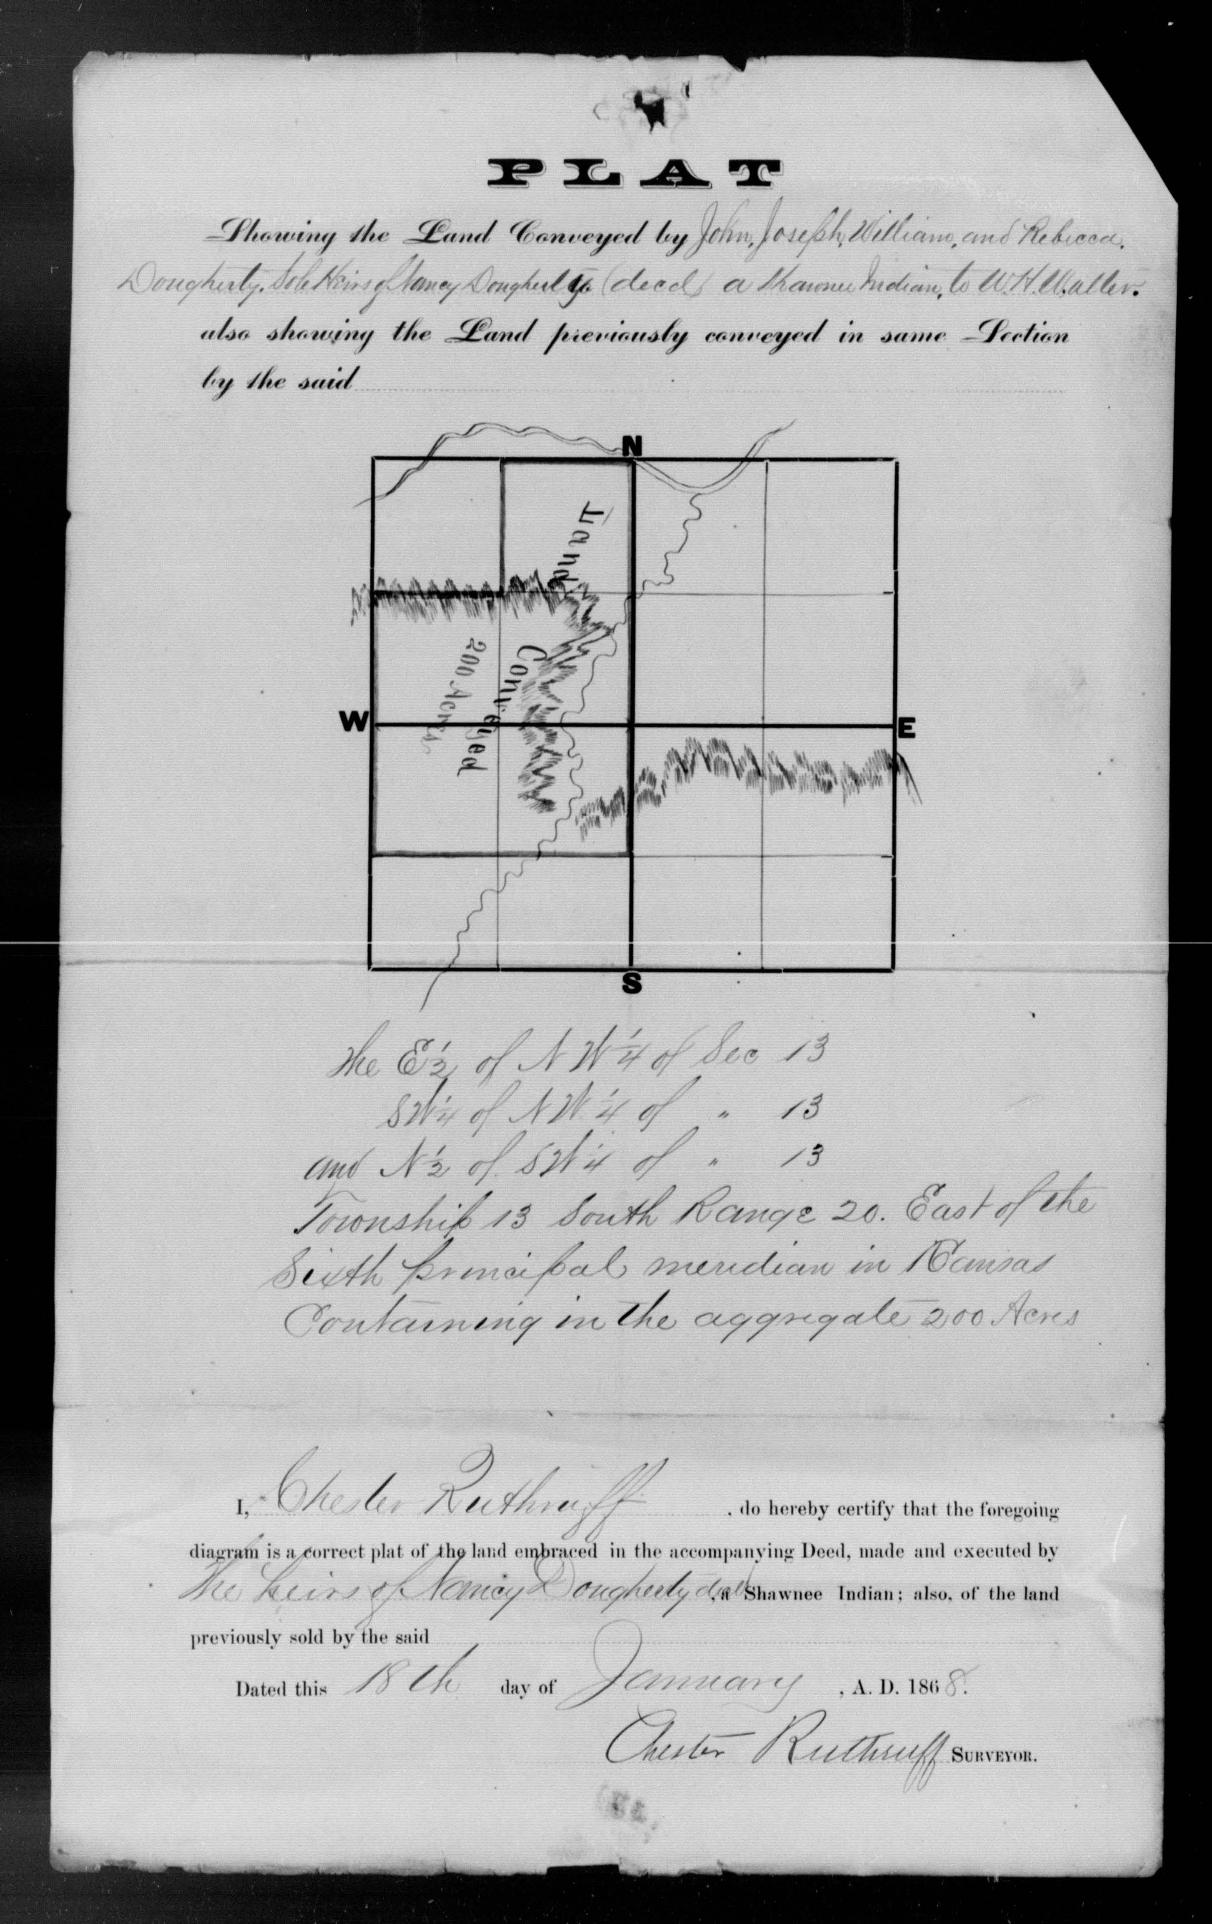 PLAT
Showing the Land Conveyed by John, Joseph, William, and Rebecca,
Dougherty, Sole Heirs of Nancy Dougherty (decd) a Shawnee Indian, to W. H.
also showing the Land previously conveyed in same Section
by the said
N
Land
Conveyed
200 Acres
W
E
S
The E 1/2 of N W 1/4 of Sec 13
S W 1/4 of N W 1/4 of " 13
and N 1/2 of S W 1/4 of " 13
Township 13 South Range 20. East of the
Sixth principal meridian in Kansas
Containing in the aggregate 200 Acres
I, Chester Ruthruff, do hereby certify that the foregoing
diagram is a correct plat of the land embraced in the accompanying Deed, made and executed by
The heirs of Nancy Dougherty decd, a Shawnee Indian; also, of the land
previously sold by the said
Dated this 18th day of January, A. D. 1868.
Chester Ruthruff SURVEYOR.